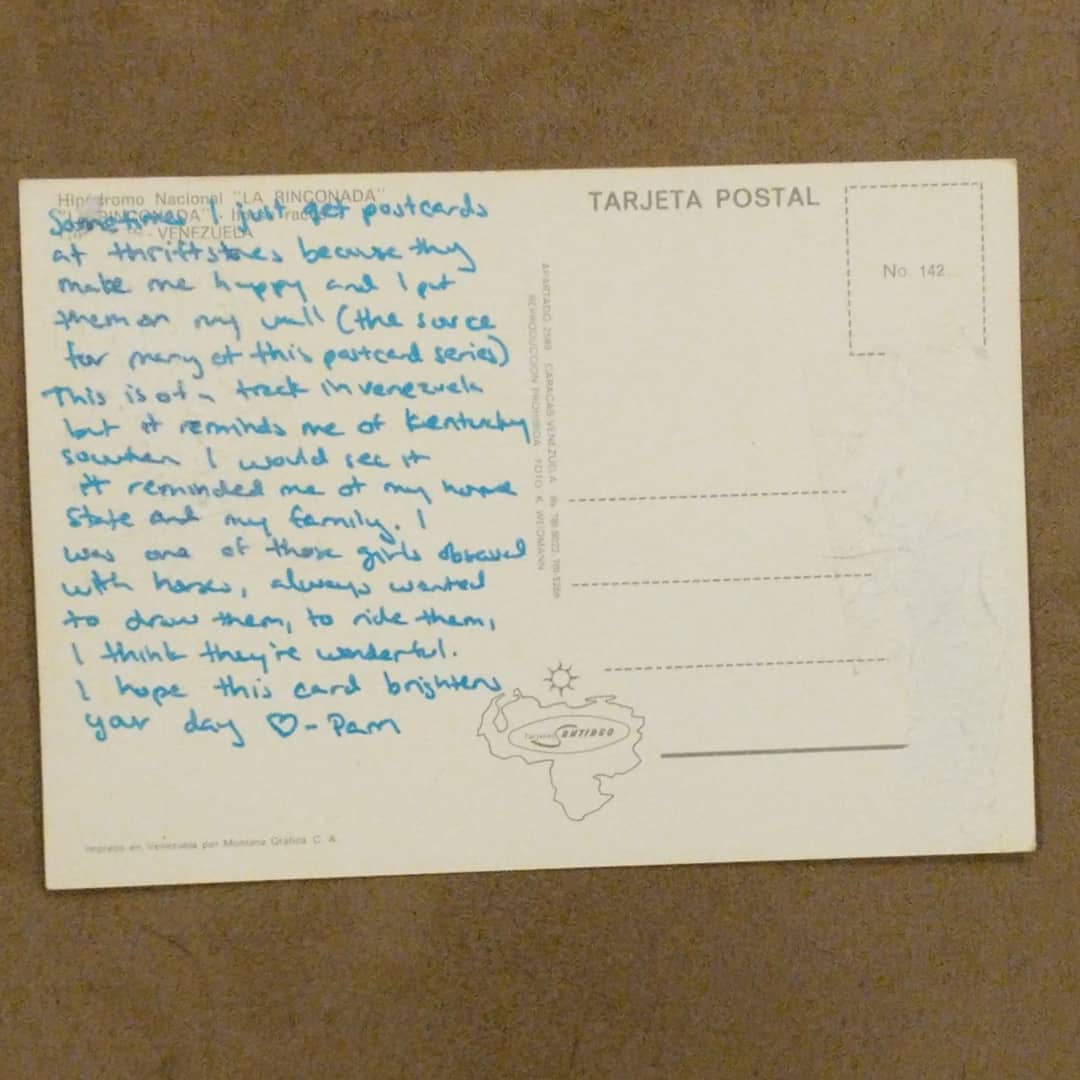 Hipódromo Nacional "LA RINCONADA"
"LA RINCONADA" horse Track
VENEZUELA
Sometimes I just get postcards
at thriftstores because they
make me happy and I put
them on my wall (the source
for many of this postcard series)
This is of a track in venezuela
but it reminds me of Kentucky
so when I would see it
it reminded me of my home
state and my family. I
was one of those girls obsessed
with horses, always wanted
to draw them, to ride them,
I think they're wonderful.
I hope this card brightens
your day ♡ - Pam
Impreso en Venezuela por Montana Gráfica C. A.
APARTADO 2580 CARACAS VENEZUELA
REPRODUCCION PROHIBIDA FOTO: K. WEIDMANN
TARJETA POSTAL
No. 142
Tarjetas